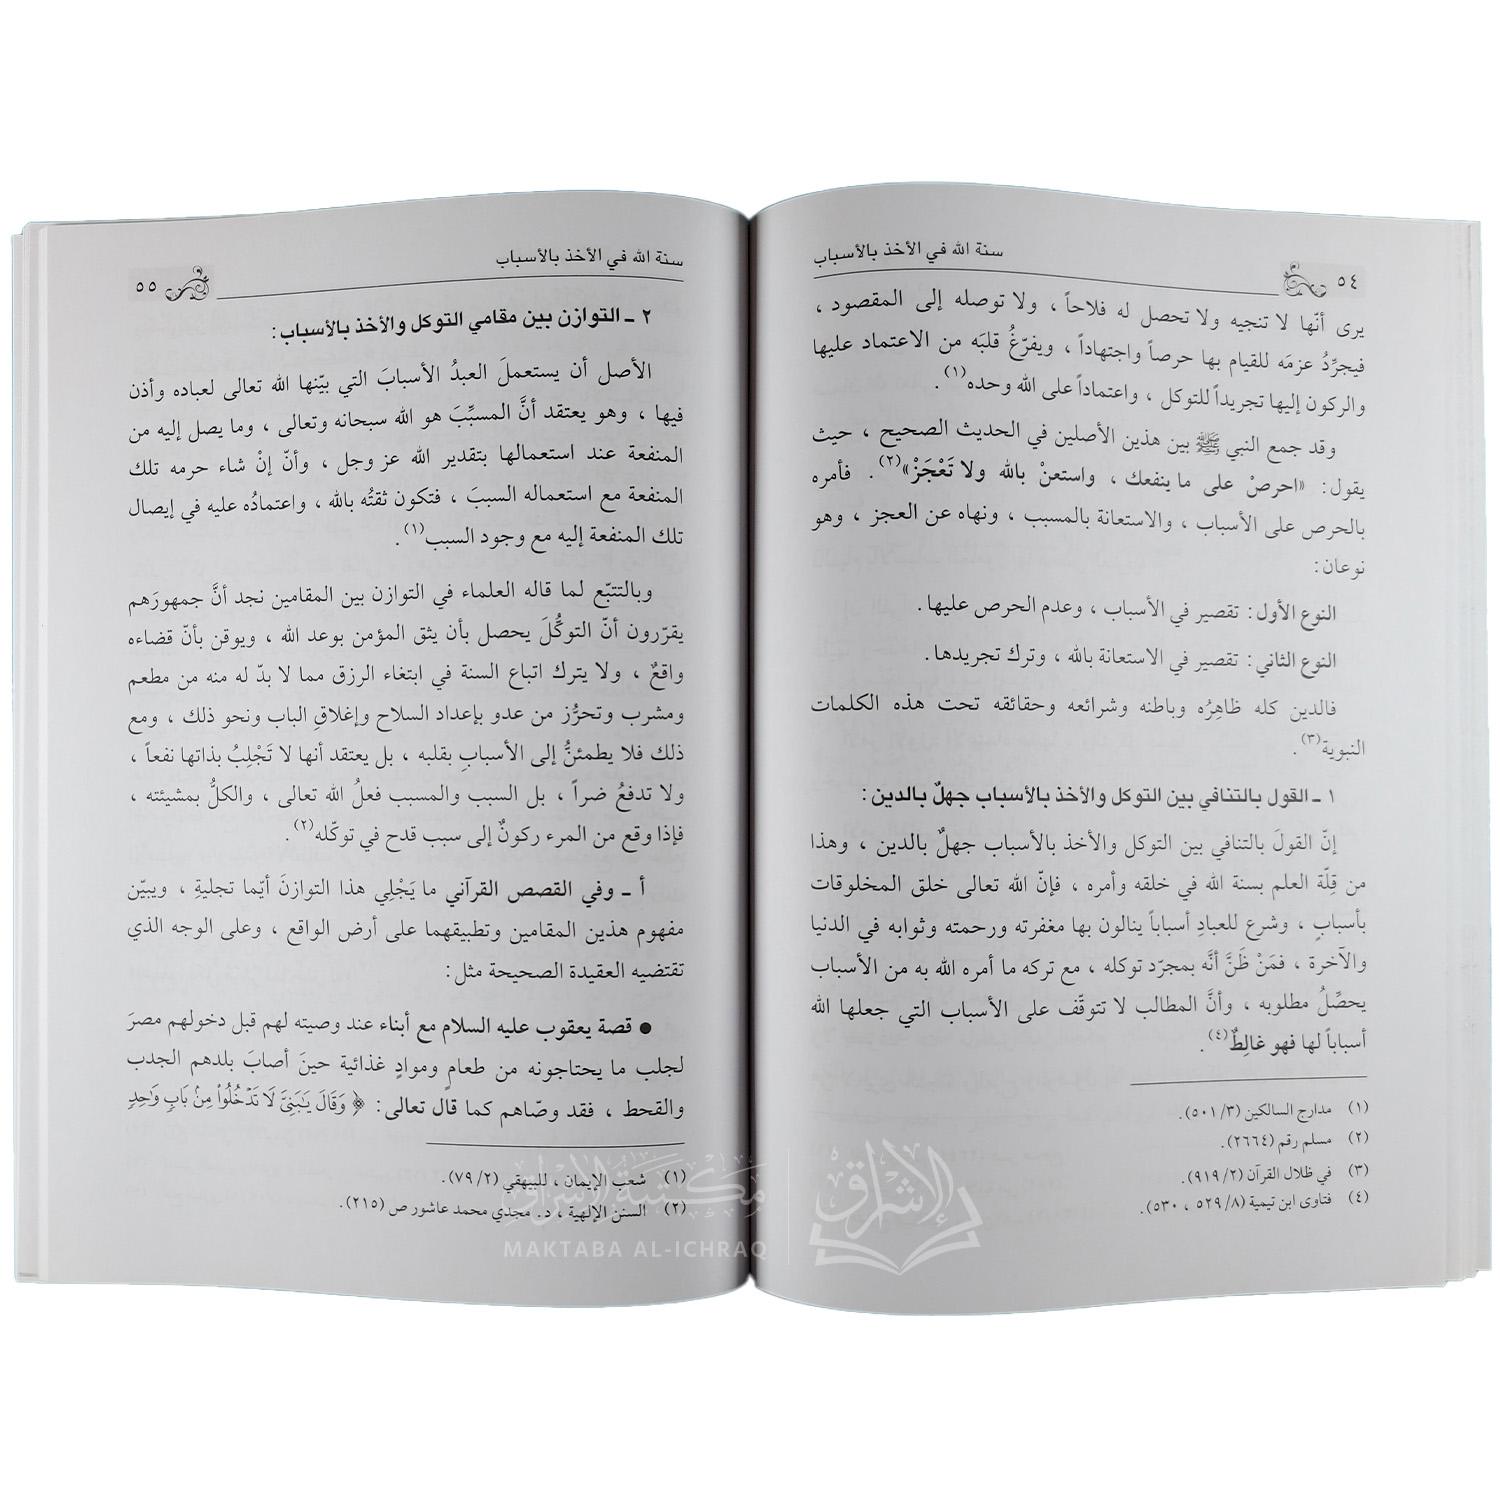 ٥٤ سنة الله في الأخذ بالأسباب
يرى أنّها لا تنجيه ولا تحصل له فلاحاً ، ولا توصله إلى المقصود ،
فيجرِّدُ عزمَه للقيام بها حرصاً واجتهاداً ، ويفرّغُ قلبَه من الاعتماد عليها
والركون إليها تجريداً للتوكل ، واعتماداً على الله وحده(١) .
وقد جمع النبي ﷺ بين هذين الأصلين في الحديث الصحيح ، حيث
يقول : «احرصْ على ما ينفعك ، واستعنْ بالله ولا تَعْجَزْ»(٢) . فأمره
بالحرص على الأسباب ، والاستعانة بالمسبب ، ونهاه عن العجز ، وهو
نوعان :
النوع الأول : تقصير في الأسباب ، وعدم الحرص عليها .
النوع الثاني : تقصير في الاستعانة بالله ، وترك تجريدها .
فالدين كله ظاهِرُه وباطنه وشرائعه وحقائقه تحت هذه الكلمات
النبوية(٣) .
١ ـ القول بالتنافي بين التوكل والأخذ بالأسباب جهلٌ بالدين :
إنّ القولَ بالتنافي بين التوكل والأخذ بالأسباب جهلٌ بالدين ، وهذا
من قِلّة العلم بسنة الله في خلقه وأمره ، فإنّ الله تعالى خلق المخلوقات
بأسبابٍ ، وشرع للعبادِ أسباباً ينالون بها مغفرته ورحمته وثوابه في الدنيا
والآخرة ، فمَنْ ظَنَّ أنَّه بمجرّد توكله ، مع تركه ما أمره الله به من الأسباب
يحصِّلُ مطلوبه ، وأنَّ المطالب لا تتوقّف على الأسباب التي جعلها الله
أسباباً لها فهو غالِطٌ(٤) .
(١) مدارج السالكين (٣/ ٥٠١).
(٢) مسلم رقم (٢٦٦٤).
(٣) في ظلال القرآن (٢/ ٩١٩).
(٤) فتاوى ابن تيمية (٨/ ٥٢٩ ، ٥٣٠).
سنة الله في الأخذ بالأسباب ٥٥
٢ ـ التوازن بين مقامي التوكل والأخذ بالأسباب :
الأصل أن يستعملَ العبدُ الأسبابَ التي بيّنها الله تعالى لعباده وأذن
فيها ، وهو يعتقد أنَّ المسبِّبَ هو الله سبحانه وتعالى ، وما يصل إليه من
المنفعة عند استعمالها بتقدير الله عز وجل ، وأنّ إنْ شاء حرمه تلك
المنفعة مع استعماله السببَ ، فتكون ثقتُه بالله ، واعتمادُه عليه في إيصال
تلك المنفعة إليه مع وجود السبب(١) .
وبالتتبّع لما قاله العلماء في التوازن بين المقامين نجد أنَّ جمهورَهم
يقرّرون أنّ التوكُّلَ يحصل بأن يثق المؤمن بوعد الله ، ويوقن بأنّ قضاءه
واقعٌ ، ولا يترك اتباع السنة في ابتغاء الرزق مما لا بدّ له منه من مطعم
ومشرب وتحرُّز من عدو بإعداد السلاح وإغلاقِ الباب ونحو ذلك ، ومع
ذلك فلا يطمئنُّ إلى الأسبابِ بقلبه ، بل يعتقد أنها لا تَجْلِبُ بذاتها نفعاً ،
ولا تدفعُ ضراً ، بل السبب والمسبب فعلُ الله تعالى ، والكلُّ بمشيئته ،
فإذا وقع من المرء ركونٌ إلى سبب قدح في توكّله(٢) .
أ ـ وفي القصص القرآني ما يَجْلِي هذا التوازنَ أيّما تجليةِ ، ويبيّن
مفهوم هذين المقامين وتطبيقهما على أرض الواقع ، وعلى الوجه الذي
تقتضيه العقيدة الصحيحة مثل :
● قصة يعقوب عليه السلام مع أبناء عند وصيته لهم قبل دخولهم مصرَ
لجلب ما يحتاجونه من طعامٍ وموادٍ غذائية حينَ أصابَ بلدهم الجدب
والقحط ، فقد وصّاهم كما قال تعالى : ﴿ وَقَالَ يَٰبَنِىَّ لَا تَدۡخُلُواْ مِنۢ بَابٖ وَٰحِدٖ
(١) شعب الإيمان ، للبيهقي (٢/ ٧٩).
(٢) السنن الإلهية ، د. مجدي محمد عاشور ص (٢١٥).
مكتبة الإشراق
MAKTABA AL-ICHRAQ
الإشراق